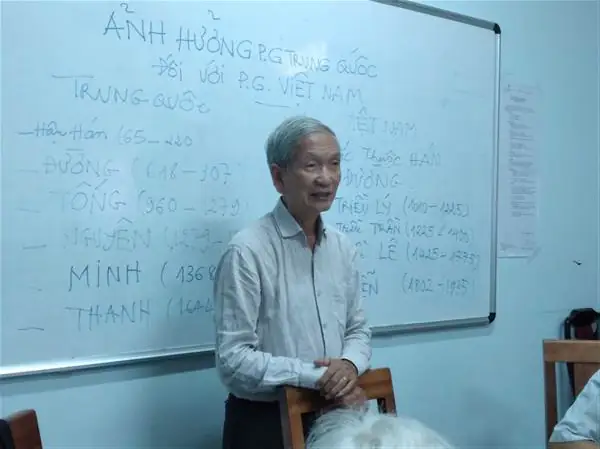 ẢNH HƯỞNG P.G TRUNG QUỐC
ĐỐI VỚI P.G. VIỆT NAM
TRUNG QUỐC
- Hậu Hán (65-220
- ĐƯỜNG (618-907)
- ỐNG (960-1279)
- NGUYÊN (1279-
MINH (1368
- THANH (1644
IỆT NAM
c Thuộc HÁN
ĐƯỜNG
TRIỀU LÝ (1010-1225)
TRIỀU TRẦN (1225-1400)
LÊ (1425-
ỄN (1802-1945)